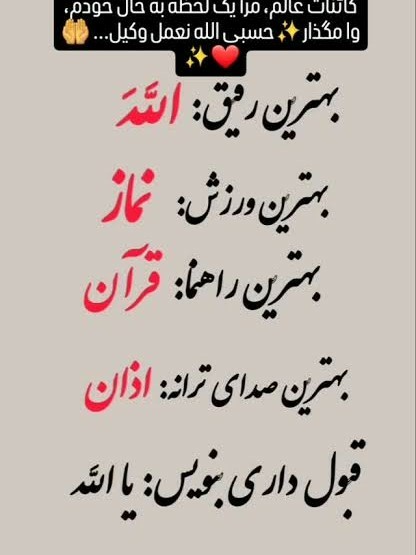 کائنات عالم، مرا یک لحظه به حال خودم،
وا مگذار✨حسبی الله نعمل وکیل...🤲
❤️✨
بهترین رفیق: اللَّهَ
بهترین ورزش: نماز
بهترین راهنما: قرآن
بهترین صدای ترانه: اذان
قبول داری بنویس: یا اللَّه